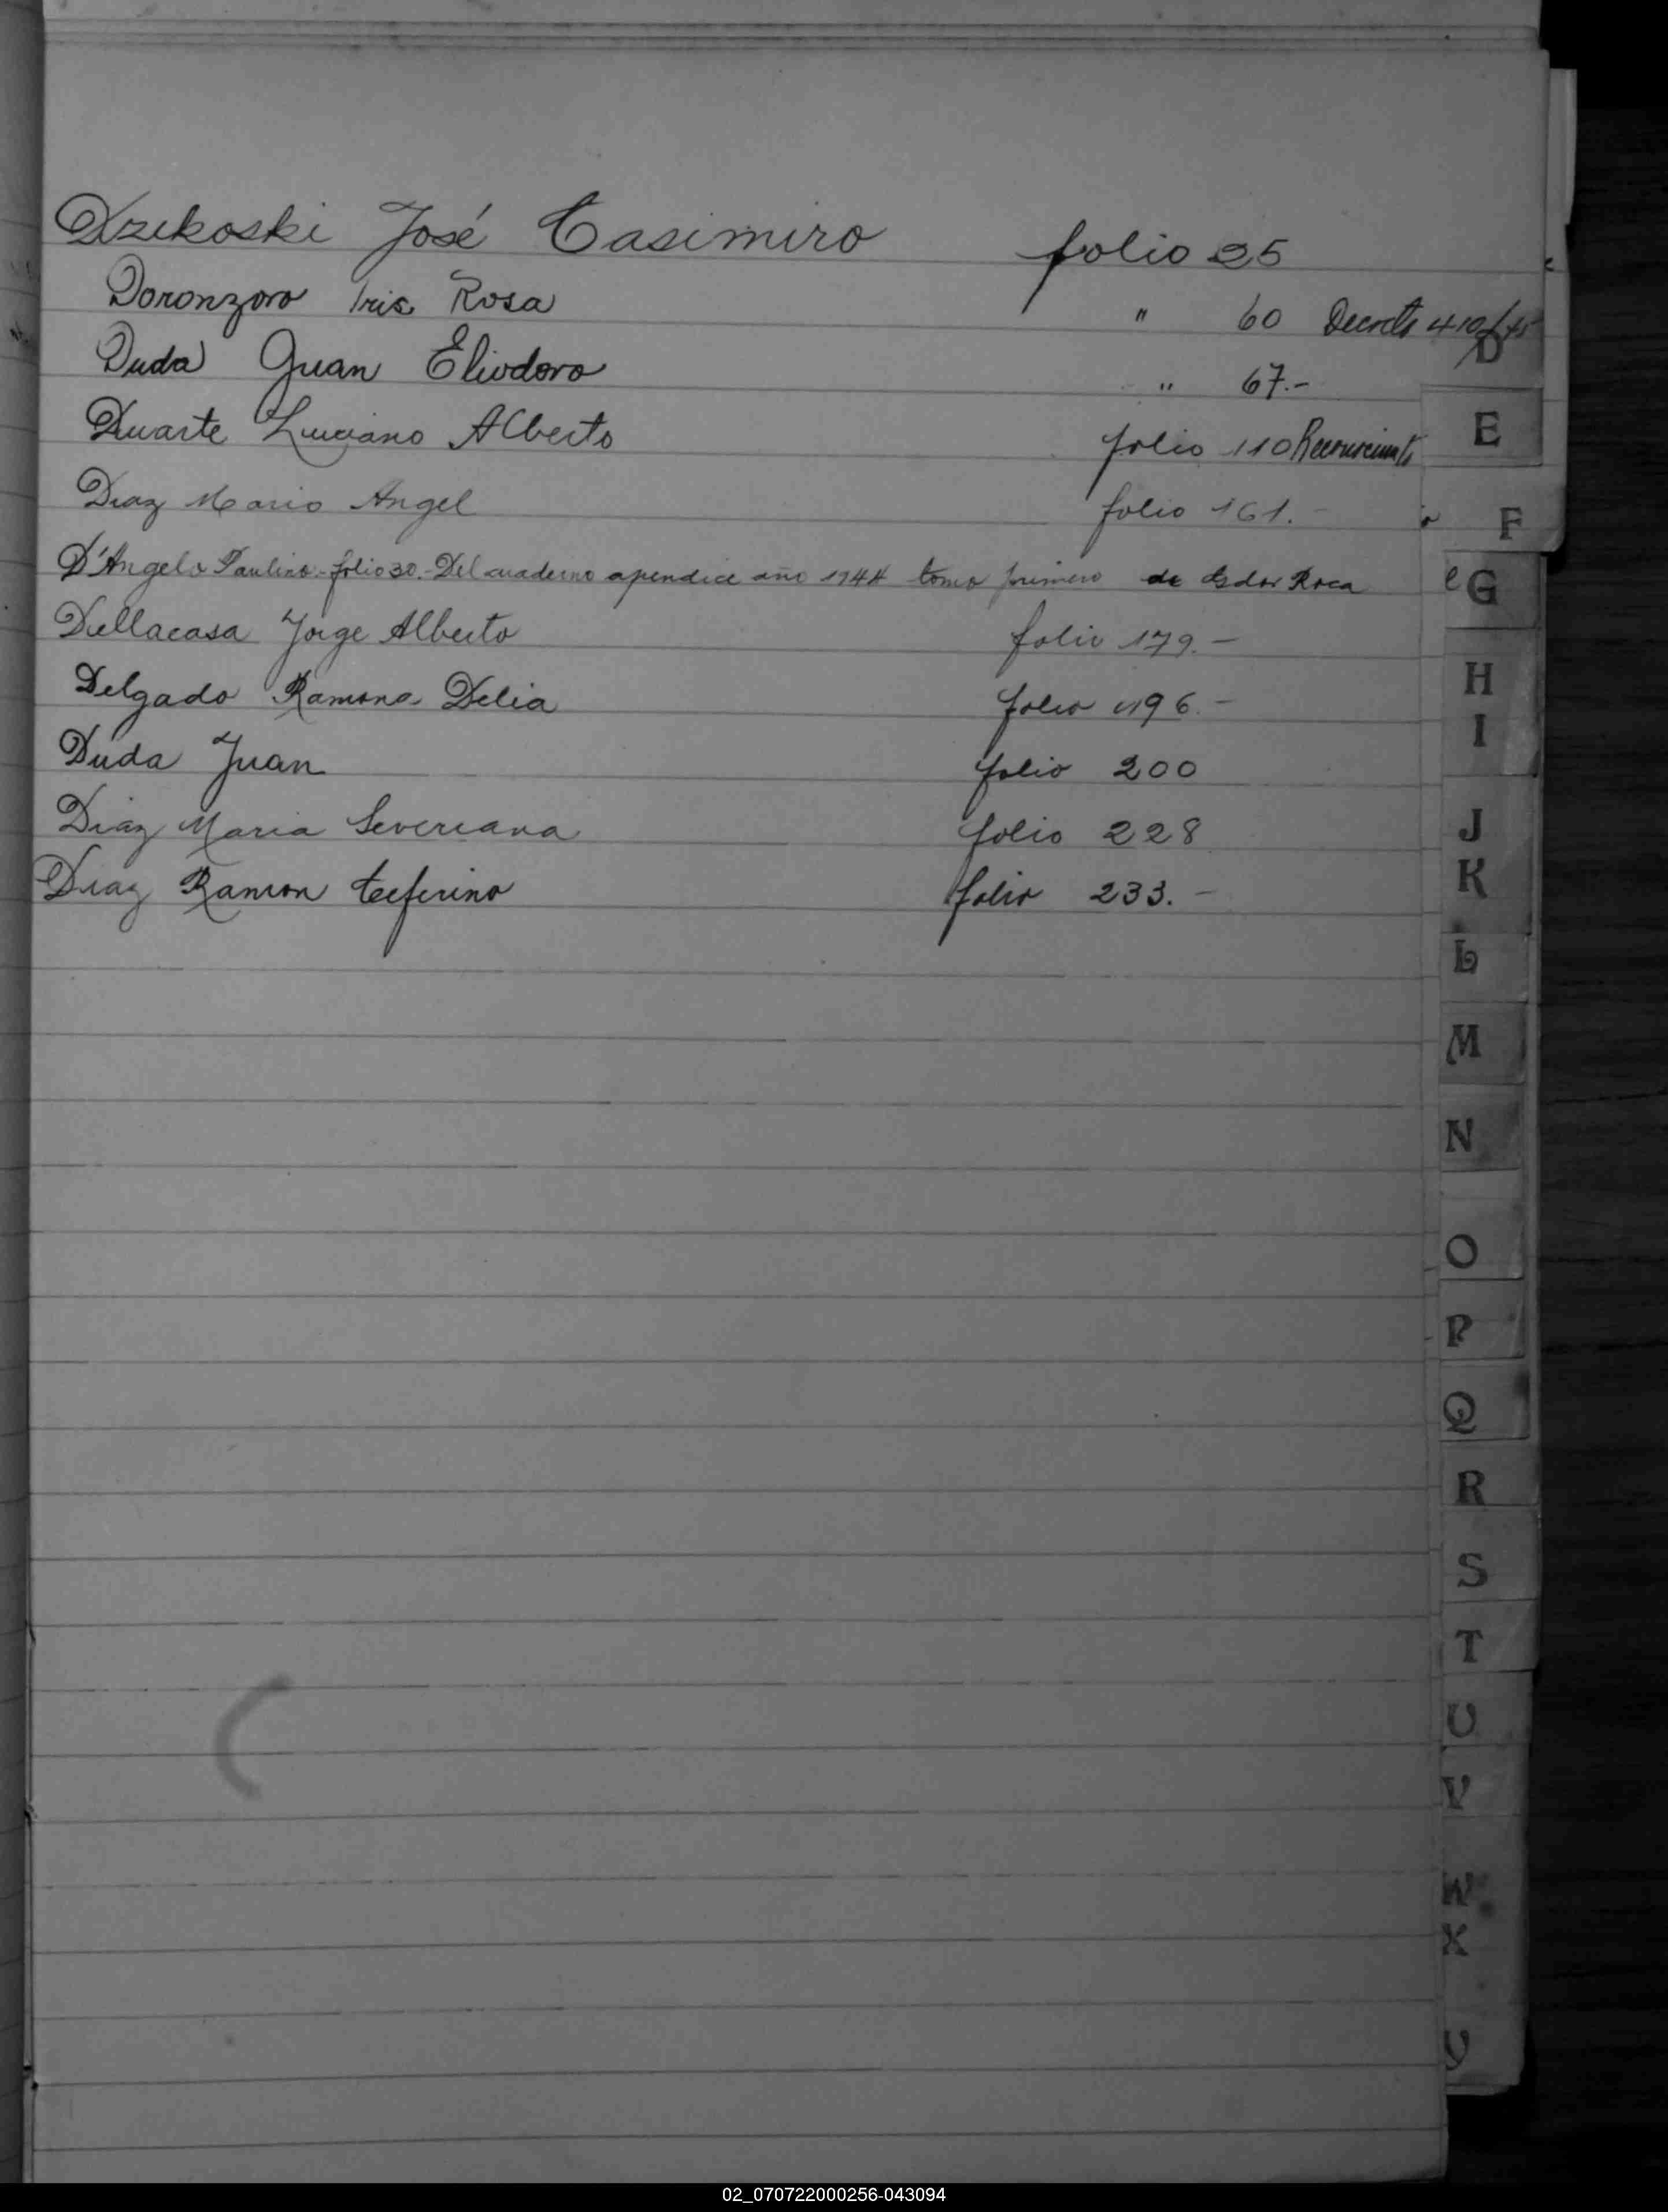 Dzekoski José Casimiro folio 25
Doronzoro Iris Rosa " 60 Decreto 410/45
Duda Juan Eliodoro " 67.-
Duarte Luciano Alberto folio 110 Reconocimiento
Diaz Mario Angel folio 161.-
D'Angelo Paulino.- folio 30.- Del cuaderno apendice año 1944 tomo primero de Gdor Roca
Dellacasa Jorge Alberto folio 179.-
Delgado Ramona Delia folio 196.-
Duda Juan folio 200
Diaz Maria Severiana folio 228
Diaz Ramon Ceferino folio 233.-
D
E
F
G
H
I
J
K
L
M
N
O
P
Q
R
S
T
U
V
W
X
02_070722000256-043094